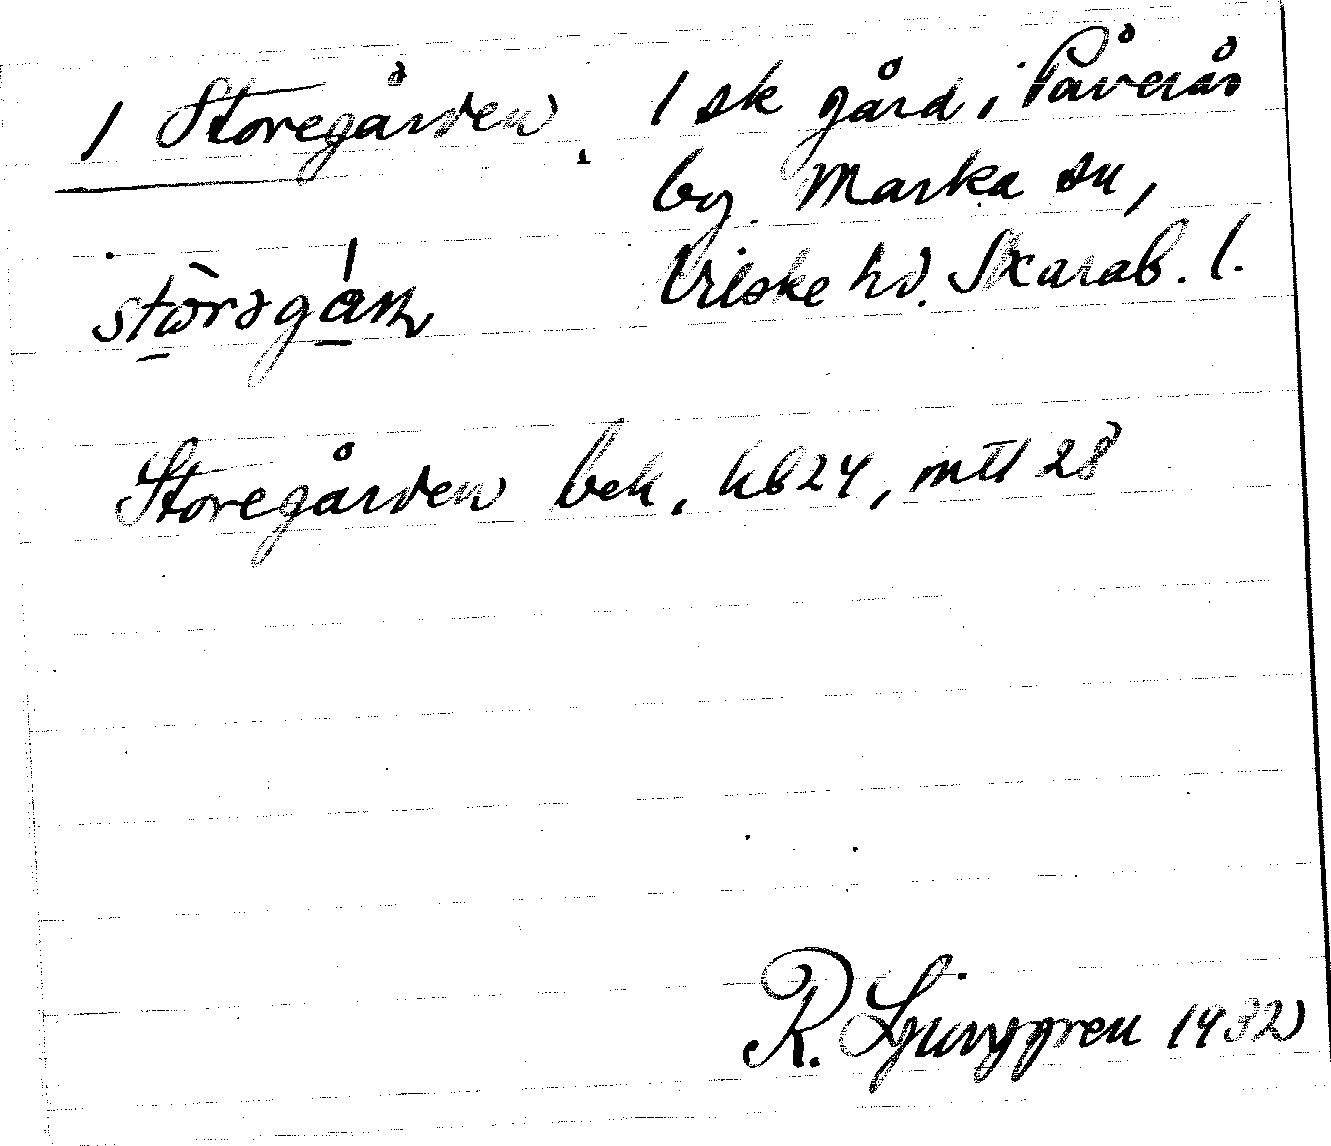 1 Storegården, 1 sk gård i Påverås
by Marka sn,
Vilske hd. Skarab. l.
Storegården bek, hb24, mtl 28
R. Ljunggren 1932